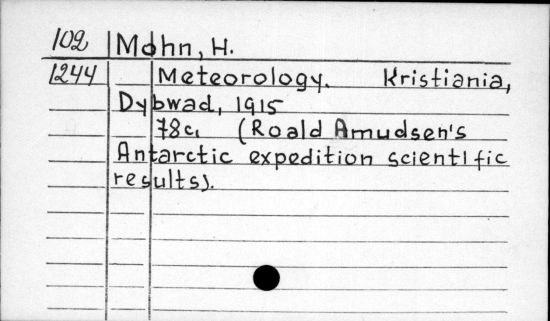 102 Mohn, H.
1244 Meteorology. Kristiania,
Dybwad, 1915
78c. (Roald Amudsen's
Antarctic expedition scientific
results).